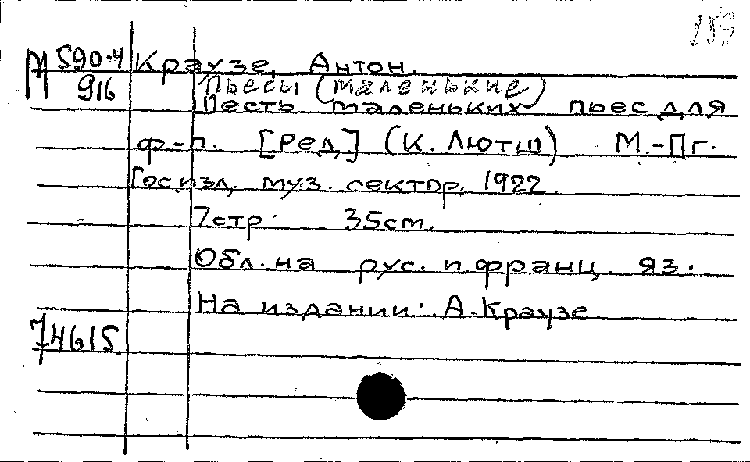 М 590-4 Краузе, Антон.
916 Пьесы (маленькие)
Шесть маленьких пьес для
ф-п. [Ред.] (К. Лютш) М.-Пг.
Госизд, муз. сектор, 1922.
7стр. 35см.
Обл. на рус. и франц. яз.
На издании: А. Краузе
74615